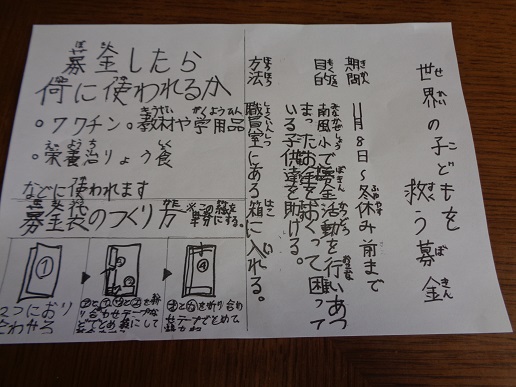 世界の子どもを
救う募金
期間 11月8日〜冬休み前まで
目的 南風小で募金活動を行いあつ
まったお金をおくって困って
いる子供達を助ける。
方法 職員室にある箱に入れる。
募金したら
何に使われるか
・ワクチン・教材や学用品
・栄養治りょう食
などに使われます
募金袋のつくり方
※この紙を
半分にする。
①
2つにおり
合わせる
④